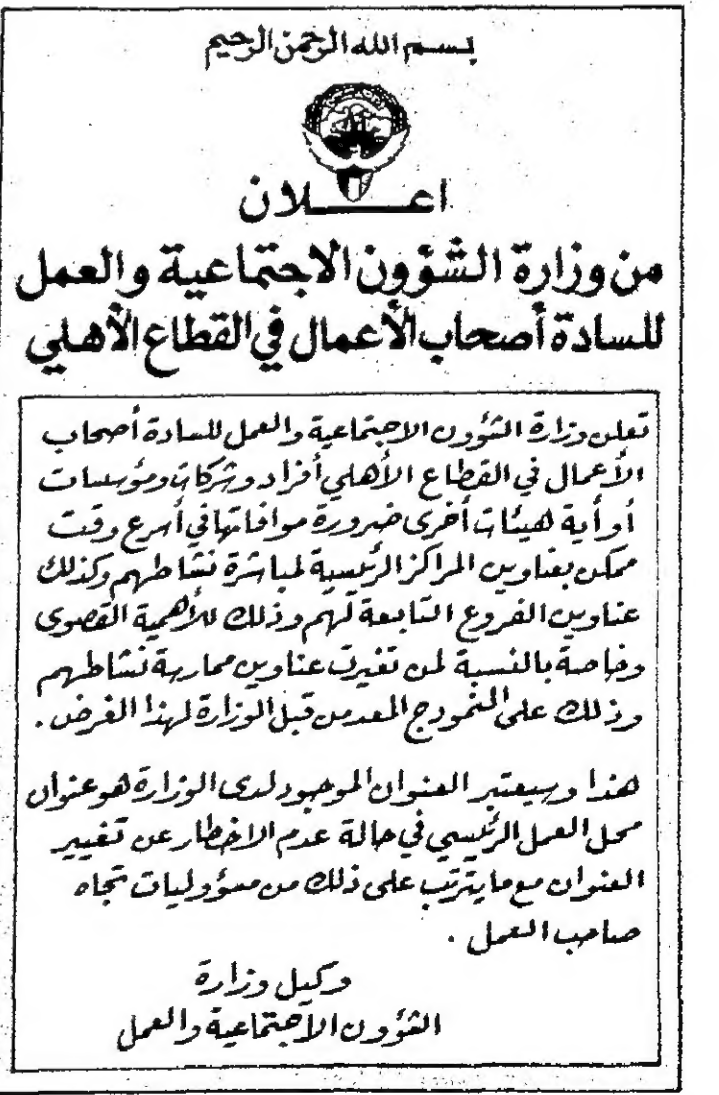 بسم الله الرحمن الرحيم
اعـــلان
من وزارة الشؤون الاجتماعية والعمل
للسادة أصحاب الأعمال في القطاع الأهلي
تعلن وزارة الشؤون الاجتماعية والعمل للسادة أصحاب
الأعمال في القطاع الأهلي أفراد وشركات ومؤسسات
أو أية هيئات أخرى ضرورة موافاتها في أسرع وقت
ممكن بعناوين المراكز الرئيسية لمباشرة نشاطهم وكذلك
عناوين الفروع التابعة لهم وذلك للأهمية القصوى
وخاصة بالنسبة لمن تغيرت عناوين ممارسة نشاطهم
وذلك على النموذج المعد من قبل الوزارة لهذا الغرض .
هذا وسيعتبر العنوان الموجود لدى الوزارة هو عنوان
محل العمل الرئيسي في حالة عدم الاخطار عن تغيير
العنوان مع ما يترتب على ذلك من مسؤوليات تجاه
صاحب العمل .
وكيل وزارة
الشؤون الاجتماعية والعمل